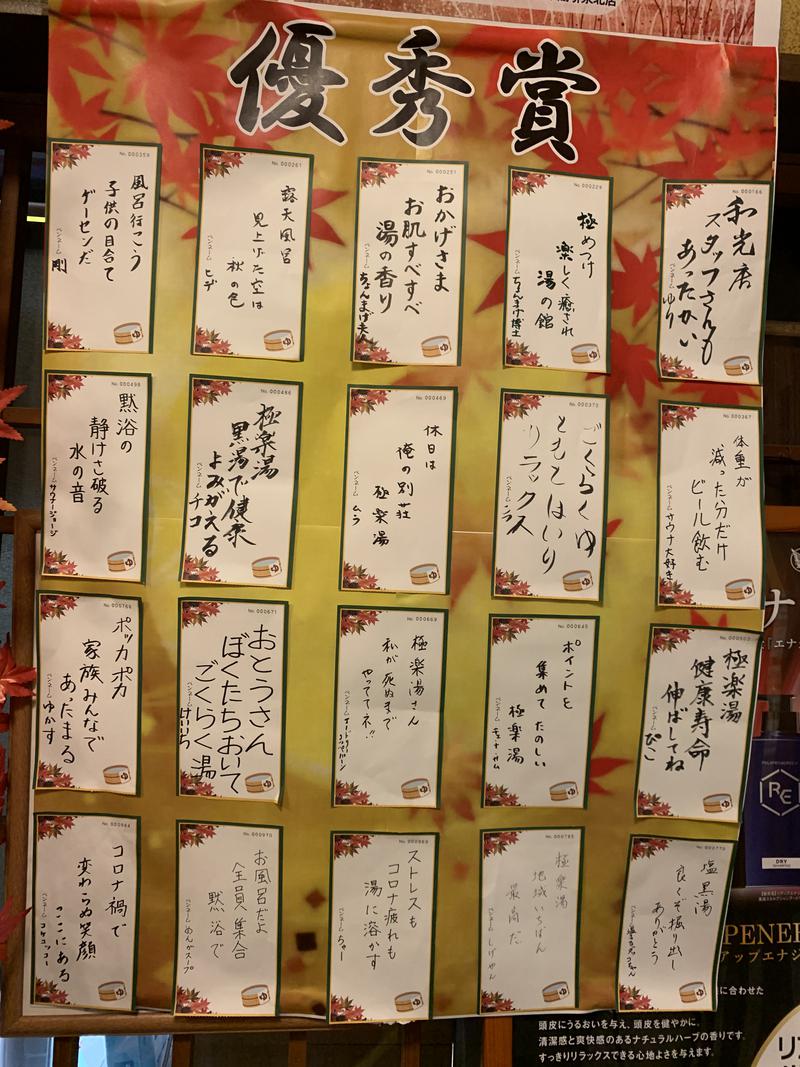 優秀賞
No. 000166
和光店
スタッフさんも
あったかい
ペンネーム ゆり
No. 000229
極めつけ
楽しく癒され
湯の館
ペンネーム ちょんまげ博士
No. 000251
おかげさま
お肌すべすべ
湯の香り
ペンネーム ちょんまげ夫人
No. 000261
露天風呂
見上げた空は
秋の色
ペンネーム ヒデ
No. 000359
風呂行こう
子供の目合て
ゲーセンだ
ペンネーム 剛
No. 000367
体重が
減った分だけ
ビール飲む
ペンネーム サウナ大好き
No. 000370
ごくらくゆ
ともとはいり
リラックス
ペンネーム
No. 000469
休日は
俺の別荘
極楽湯
ペンネーム ムラ
No. 000486
極楽湯
黒湯で健康
よみがえる
ペンネーム チコ
No. 000498
黙浴の
静けさ破る
水の音
ペンネーム サウナージョージ
極楽湯
健康寿命
伸ばしてね
ペンネーム ぴこ
No. 000645
ポイントを
集めて たのしい
極楽湯
ペンネーム
No. 000669
極楽湯さん
私が死ぬまで
やっててネ!!
ペンネーム
No. 000671
おとうさん
ぼくたちおいて
ごくらく湯
ペンネーム けいいち
ポッカポカ
家族みんなで
あったまる
ペンネーム ゆかす
No. 000770
塩黒湯
良くぞ掘り出し
ありがとう
ペンネーム
No. 000785
極楽湯
地域いちばん
最高だ
ペンネーム しげやん
ストレスも
コロナ疲れも
湯に溶かす
ペンネーム ちゃー
No. 000970
お風呂だよ
全員集合
黙浴で
ペンネーム めんかスープ
コロナ禍で
変わらぬ笑顔
ここにある
ペンネーム コケコッコー
RE
DRY
に合わせた
頭皮にうるおいを与え、頭皮を健やかに。
清潔感と爽快感のあるナチュラルハーブの香りです。
すっきりリラックスできる心地よさを与えます。